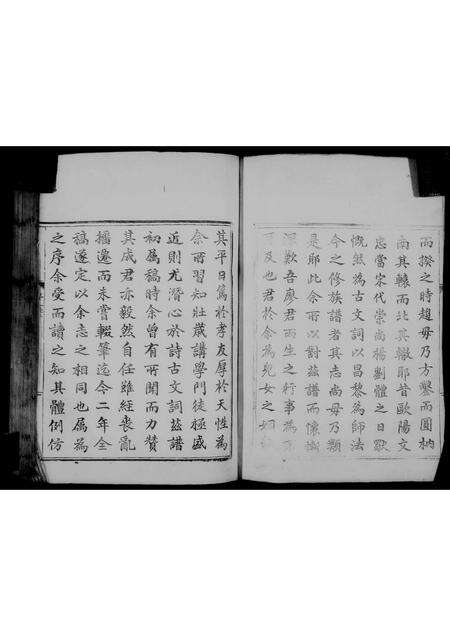 而揆之時趨毋乃方鑿而圓枘
南其轅而北其轍耶昔歐陽文
忠當宋代崇尚楊劉體之日歐
慨然為古文詞以昌黎為師法
今之修族譜者其志尚毋乃類
是耶此余所以對茲譜而懷慚
深歎吾廖君而生之行事為不
可及也君於余為兒女之姻
其平日篤於孝友厚於天性為
余所習知壯歲講學門徒極盛
近則尤潛心於詩古文詞茲譜
初屬稿時余曾有所聞而力贊
其成君亦毅然自任雖經喪亂
播遷而未嘗輟筆迄今二年全
稿遂定以余志之相同也屬為
之序余受而讀之知其體例仿